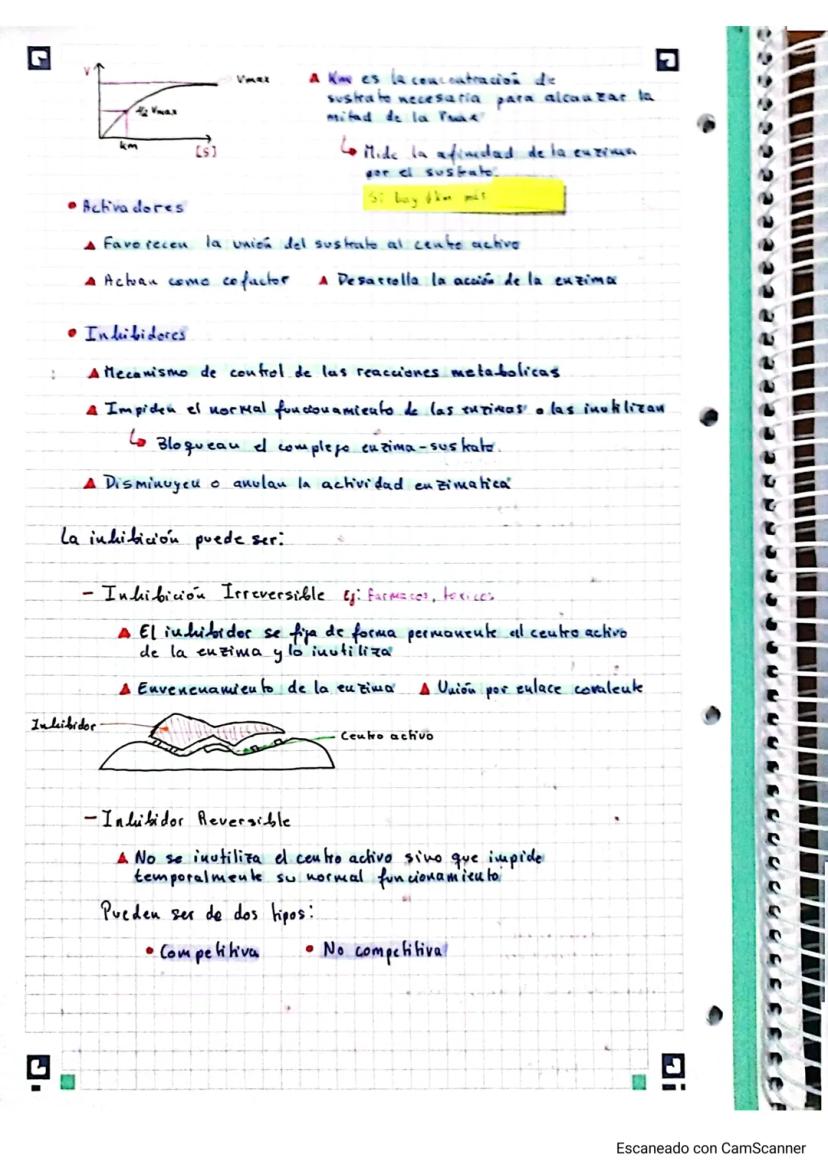 V
Vmax
½ Vmax
km
[S]
▲ Km es la concentración de
sustrato necesaria para alcanzar la
mitad de la Vmax
↳ Mide la afinidad de la enzima
por el sustrato.
Si hay ↓km más
• Activadores
▲ Favorecen la unión del sustrato al centro activo
▲ Actuan como cofactor ▲ Desarrolla la acción de la enzima
• Inhibidores
▲ Mecanismo de control de las reacciones metabolicas
▲ Impiden el normal funcionamiento de las enzimas o las inutilizan
↳ Bloquean el complejo enzima-sustrato.
▲ Disminuyen o anulan la actividad enzimatica
La inhibición puede ser:
- Inhibición Irreversible Ej: farmacos, toxicos
▲ El inhibidor se fija de forma permanente al centro activo
de la enzima y lo inutiliza
▲ Envenenamiento de la enzima ▲ Unión por enlace covalente
Inhibidor
Centro activo
- Inhibidor Reversible
▲ No se inutiliza el centro activo sino que impide
temporalmente su normal funcionamiento
Pueden ser de dos tipos:
• Competitiva • No competitiva
Escaneado con CamScanner